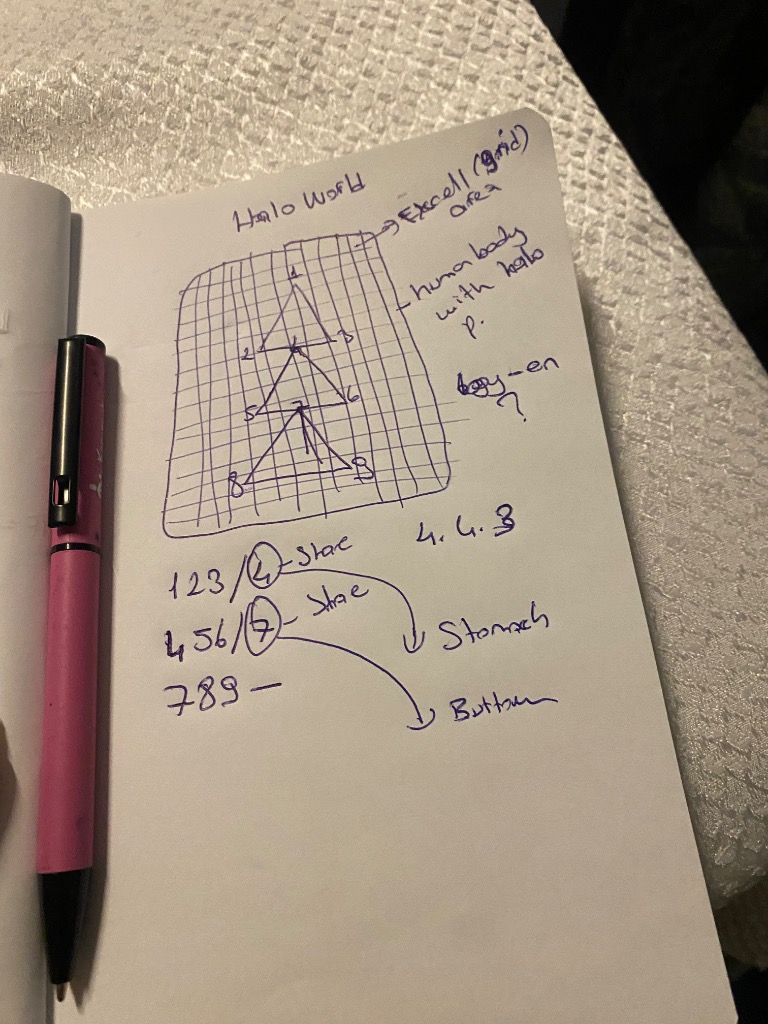 Halo World
Excell (grid)
area
human body
with halo
p.
1
2 4 3
5 7 6
8 9
?
4.4.3
123/4 - Stae
456/7 - Stae
789 -
Stomach